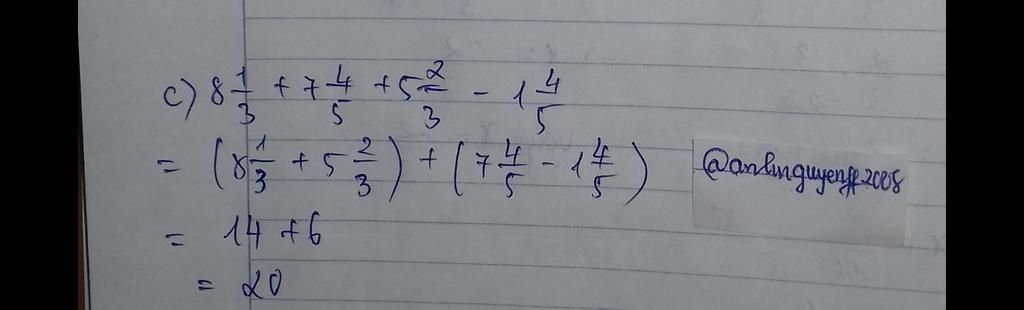 c) 8 1/3 + 7 4/5 + 5 2/3 - 1 4/5
= (8 1/3 + 5 2/3) + (7 4/5 - 1 4/5)
@anlinguyenff2008
= 14 + 6
= 20